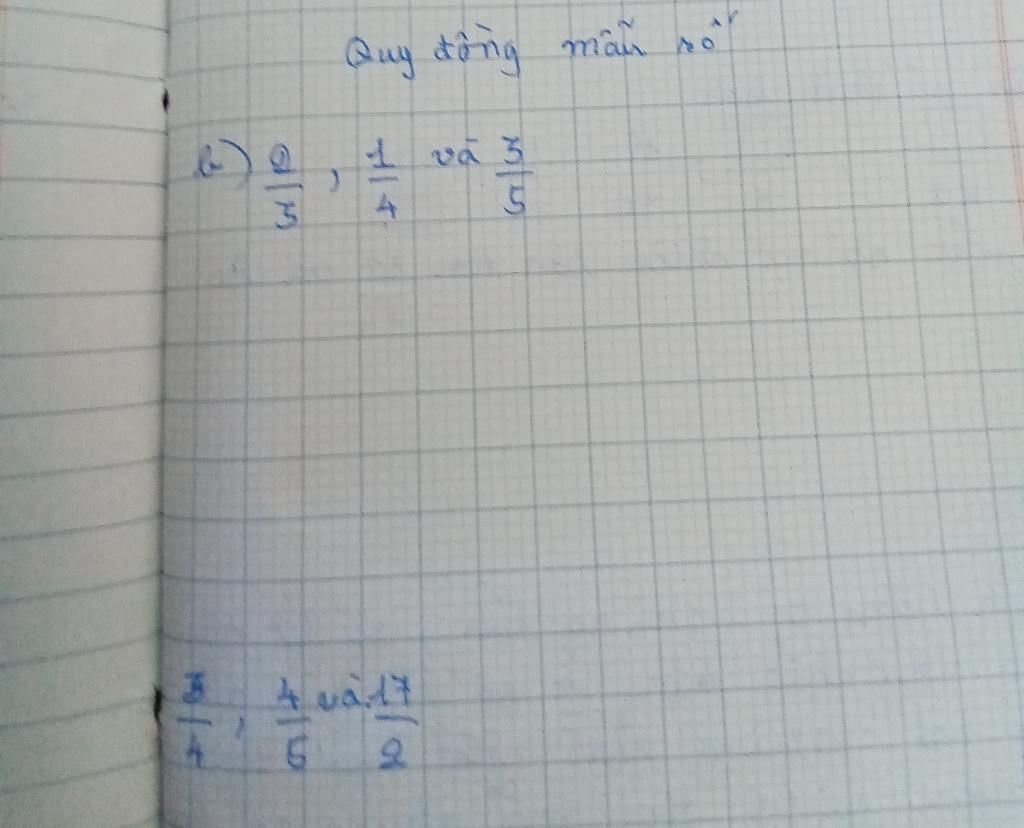 Quy đồng mẫu số
a) 2/3 , 1/4 và 3/5
3/4 , 4/5 và 17/2